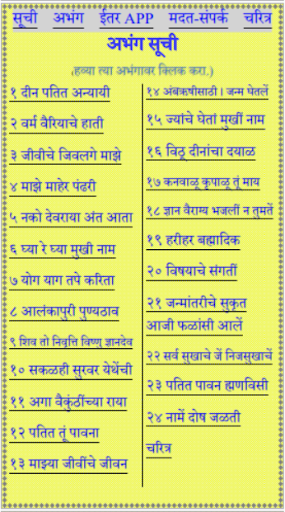 सूची अभंग ईतर APP मदत-संपर्क चरित्र
अभंग सूची
(हव्या त्या अभंगावर क्लिक करा.)
१ दीन पतित अन्यायी
२ वर्म वैरियाचे हाती
३ जीवीचे जिवलगे माझे
४ माझे माहेर पंढरी
५ नको देवराया अंत आता
६ घ्या रे घ्या मुखी नाम
७ योग याग तपे करिता
८ आलंकापुरी पुण्यठाव
९ शिव तो निवृत्ति विष्णु ज्ञानदेव
१० सकळही सुरवर येथेंची
११ अगा वैकुंठींच्या राया
१२ पतित तूं पावना
१३ माझ्या जीवींचे जीवन
१४ अंबऋषीसाठी। जन्म घेतलें
१५ ज्यांचे घेतां मुखीं नाम
१६ विठू दीनांचा दयाळ
१७ कनवाळू कृपाळू तूं माय
१८ ज्ञान वैराग्य भजलीं न तुमतें
१९ हरीहर ब्रह्मादिक
२० विषयाचे संगतीं
२१ जन्मांतरीचे सुकृत
आजी फळांसी आलें
२२ सर्व सुखाचे जें निजसुखाचें
२३ पतित पावन ह्मणविसी
२४ नामें दोष जळती
चरित्र